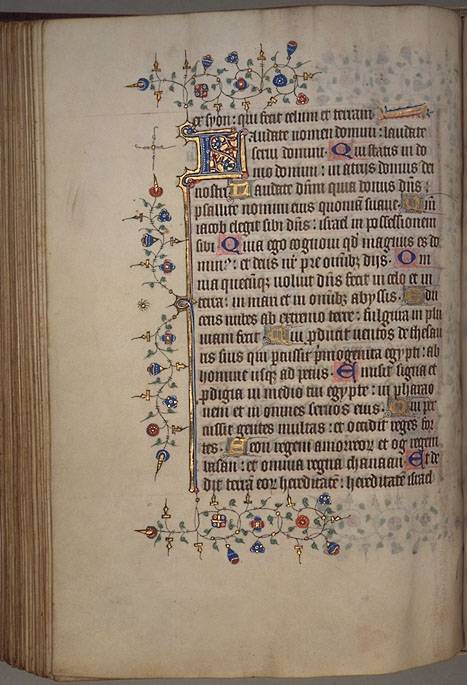 ex syon: qui fecit celum et terram
Laudate nomen domini: laudate
servi domini. Qui statis in do
mo domini: in atrijs domus dei
nostri. Laudate dnm quia bonus dns:
psallite nomini eius quoniam suave. Qm
iacob elegit sibi dns: israel in possessionem
sibi. Quia ego cognovi qd magnus est do
min9: et deus nr pre omibz dijs. Om
nia quecuqz voluit dns fecit in celo et in
terra: in mari et in omibz abyssis. Edu
cens nubes ab extremo terre: fulgura in plu
viam fecit. Qui pducit ventos de thesau
ris suis qui pcussit pmogenita egypti: ab
homine usqz ad pecus. Emisit signa et
pdigia in medio tui egypte: in pharao
nem et in omnes servos eius. Qui per
cussit gentes multas: et occidit reges for
tes. Seon regem amorreor et og regem
basan: et omnia regna chanaan. Et de
dit terra eor hereditate: hereditate israel